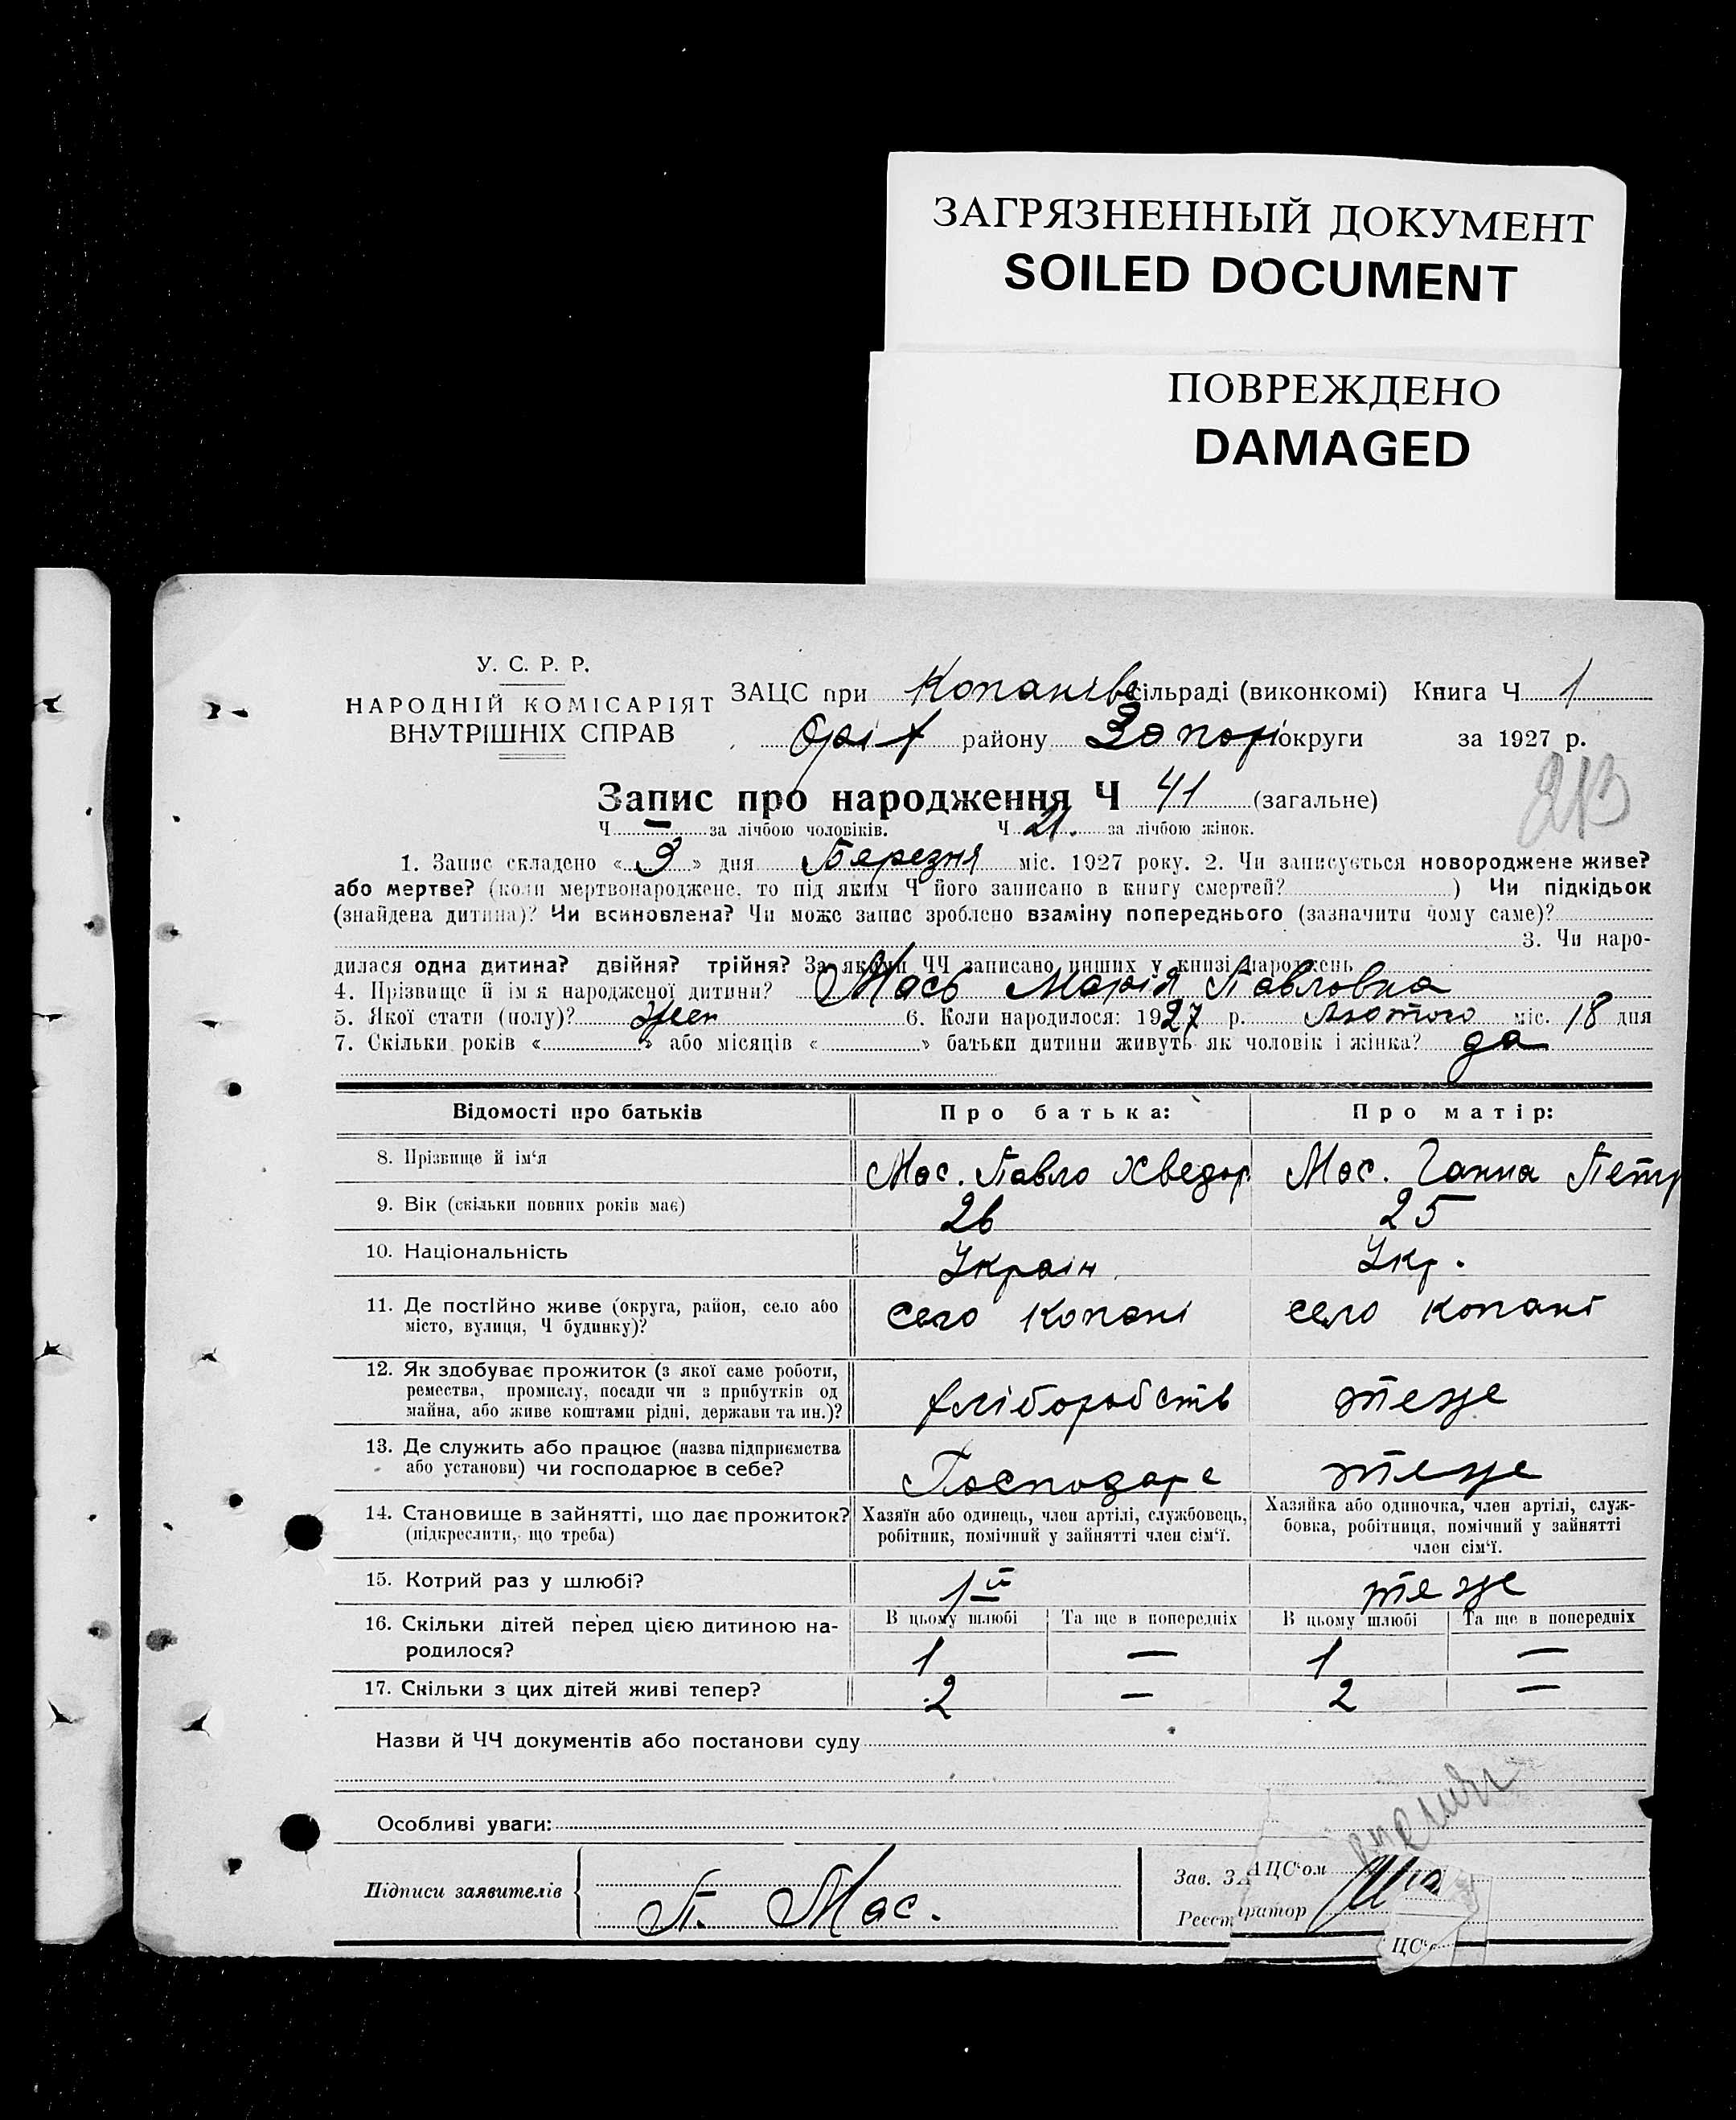 ЗАГРЯЗНЕННЫЙ ДОКУМЕНТ
SOILED DOCUMENT
ПОВРЕЖДЕНО
DAMAGED
У. С. Р. Р.
НАРОДНІЙ КОМІСАРІЯТ
ВНУТРІШНІХ СПРАВ
ЗАЦС при Копанівс сільраді (виконкомі) Книга Ч 1
Оріх району Запоріз округи за 1927 р.
213
Запис про народження Ч 41 (загальне)
Ч — за лічбою чоловіків. Ч 21. за лічбою жінок.
1. Запис складено « 9 » дня Березня міс. 1927 року. 2. Чи записується новороджене живе?
або мертве? (коли мертвонароджене, то під яким Ч його записано в книгу смертей? ) Чи підкідьок
(знайдена дитина)? Чи всиновлена? Чи може запис зроблено взаміну попереднього (зазначити чому саме)?
3. Чи наро-
дилася одна дитина? двійня? трійня? За якими ЧЧ записано инших у книзі народжень
4. Прізвище й ім я народженої дитини? Мась Марія Павловна
5. Якої стати (полу)? Жен 6. Коли народилося: 1927 р. Лютого міс. 18 дня
7. Скільки років « » або місяців « » батьки дитини живуть як чоловік і жінка? да
Відомості про батьків Про батька: Про матір:
8. Прізвище й ім‘я Мас. Павло Хведор Мас. Ганна Петр
9. Вік (скільки повних років має) 26 25
10. Національність Украін. Укр.
11. Де постійно живе (округа, район, село або
місто, вулиця, Ч будинку)? село Копані село Копані
12. Як здобуває прожиток (з якої саме роботи,
ремества, промислу, посади чи з прибутків од
майна, або живе коштами рідні, держави та ин.)? хліборобств теже
13. Де служить або працює (назва підприємства
або установи) чи господарює в себе? Господарє теже
14. Становище в зайнятті, що дає прожиток?
(підкреслити, що треба)
Хазяїн або одинець, член артілі, службовець,
робітник, помічний у зайнятті член сім‘ї.
Хазяйка або одиночка, член артілі, служ-
бовка, робітниця, помічний у зайнятті
член сім‘ї.
15. Котрий раз у шлюбі? 1й теже
В цьому шлюбі Та ще в попередніх В цьому шлюбі Та ще в попередніх
16. Скільки дітей перед цією дитиною на-
родилося? 1 — 1 —
17. Скільки з цих дітей живі тепер? 2 — 2 —
Назви й ЧЧ документів або постанови суду
Особливі уваги:
Підписи заявителів П. Мас.
Зав. ЗАЦС‘ом
Реєстратор
ЦС‘